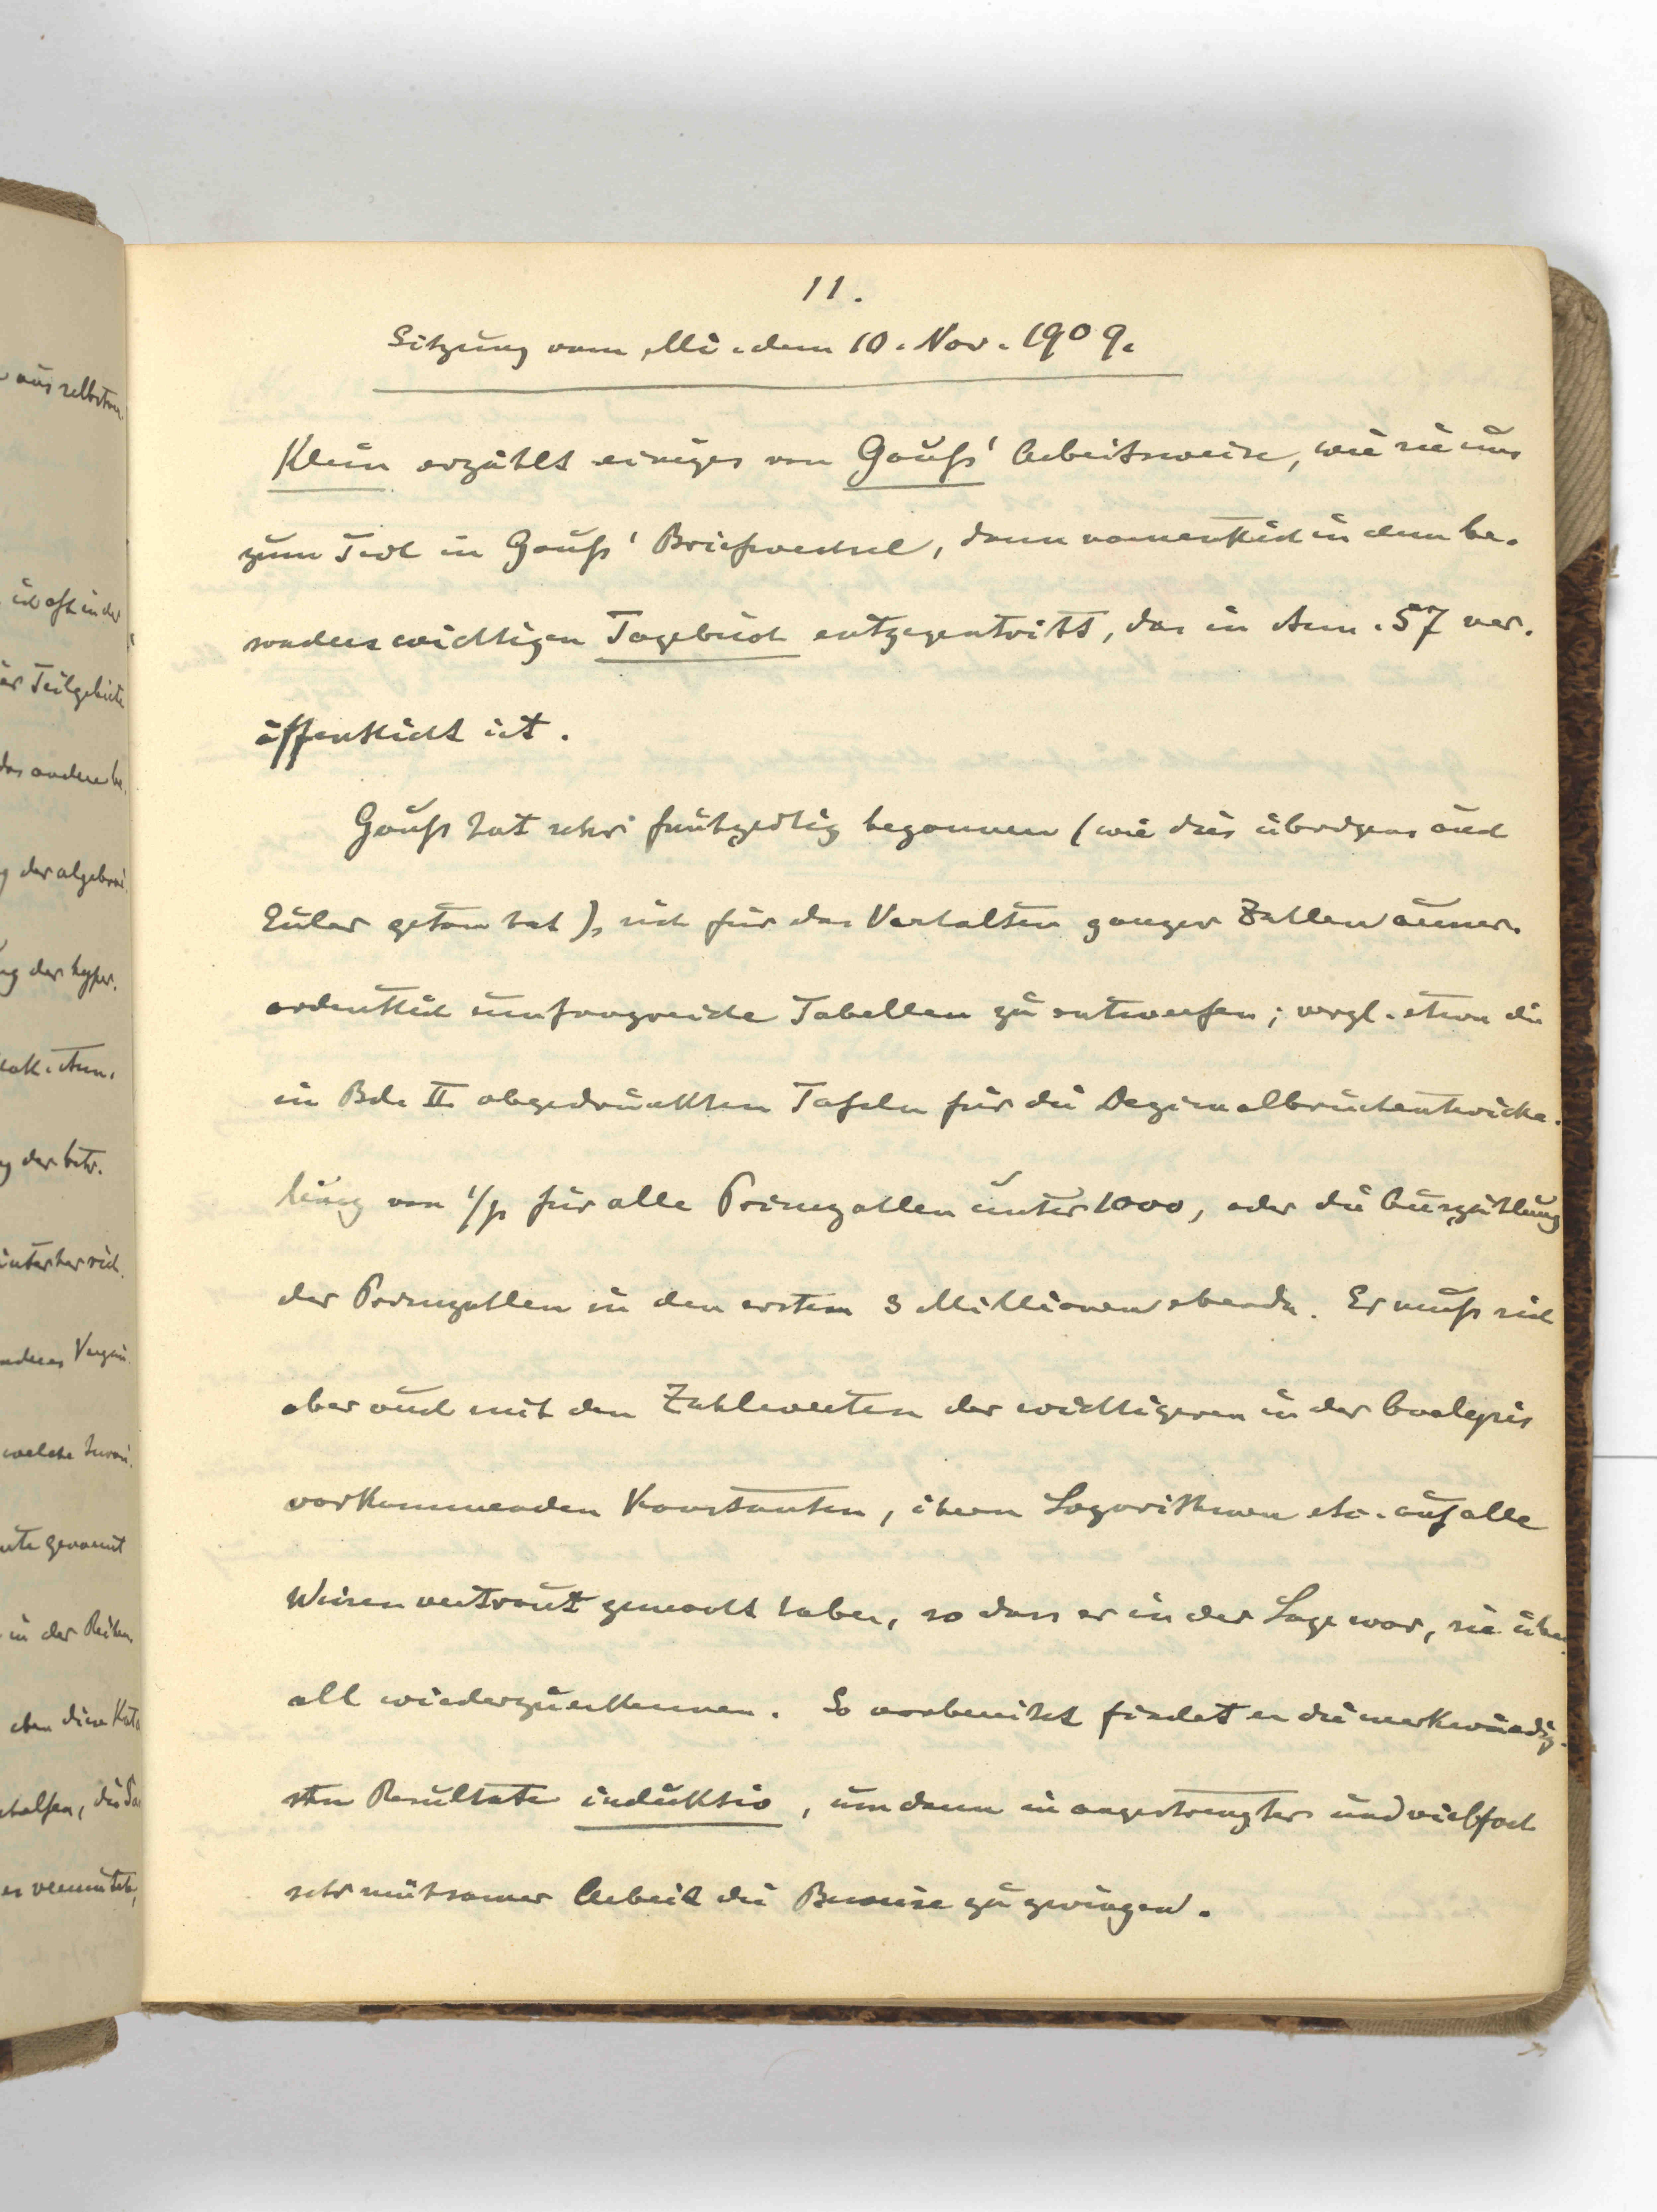 aus selbstver
ich oft in der
är Teilgebiete
das andere be-
g der algebrai-
ng der hyper-
Math. Ann.
g der betr.
interher sich
anderes Vergnü-
welche Invari-
ute genannt
in der Reihen-
eben diese Kata
ehalfen, die
er vermutete,
11.
Sitzung vom Mi. dem 10. Nov. 1909.
Klein erzählt einiges von Gauß' Arbeitsweise, wie sie uns
zum Teil in Gauß' Briefwechsel, dann namentlich in dem be-
sonders wichtigen Tagebuch entgegentritt, das in Ann. 57 ver-
öffentlicht ist.
Gauß hat sehr frühzeitig begonnen (wie dies übrigens auch
Euler getan hat), sich für das Verhalten ganzer Zahlen ausser-
ordentlich umfangreiche Tabellen zu entwerfen; vergl. etwa die
in Bde II abgedruckten Tafeln für die Dezimalbruchentwicke-
lung von 1/p für alle Primzahlen unter 1000, oder die Auszählung
der Primzahlen in den ersten 3 Millionen ebenda. Er muß sich
aber auch mit den Zahlwerten der wichtigeren in der Analysis
vorkommenden Konstanten, ihren Logarithmen etc. auf alle
Weisen vertraut gemacht haben, so dass er in der Lage war, sie über-
all wiederzuerkennen. So vorbereitet findet er die merkwürdig-
sten Resultate induktiv, um dann in angestrengter und vielfach
sehr mühsamer Arbeit die Beweise zu zwingen.